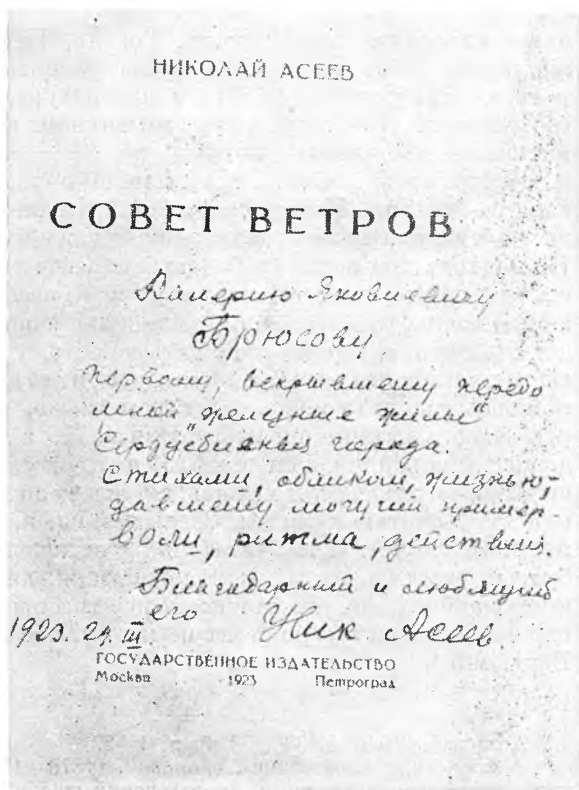 НИКОЛАЙ АСЕЕВ
СОВЕТ ВЕТРОВ
Валерию Яковлевичу
Брюсову
первому, вскрывшему передо
мной „железные жилы“
сердцебиенья города.
Стихами, обликом, жизнью,
давшему могучий пример
воли, ритма, действия
Благодарный и любящий
его Ник Асеев.
1923. 24. III.
ГОСУДАРСТВЕННОЕ ИЗДАТЕЛЬСТВО
Москва 1923 Петроград